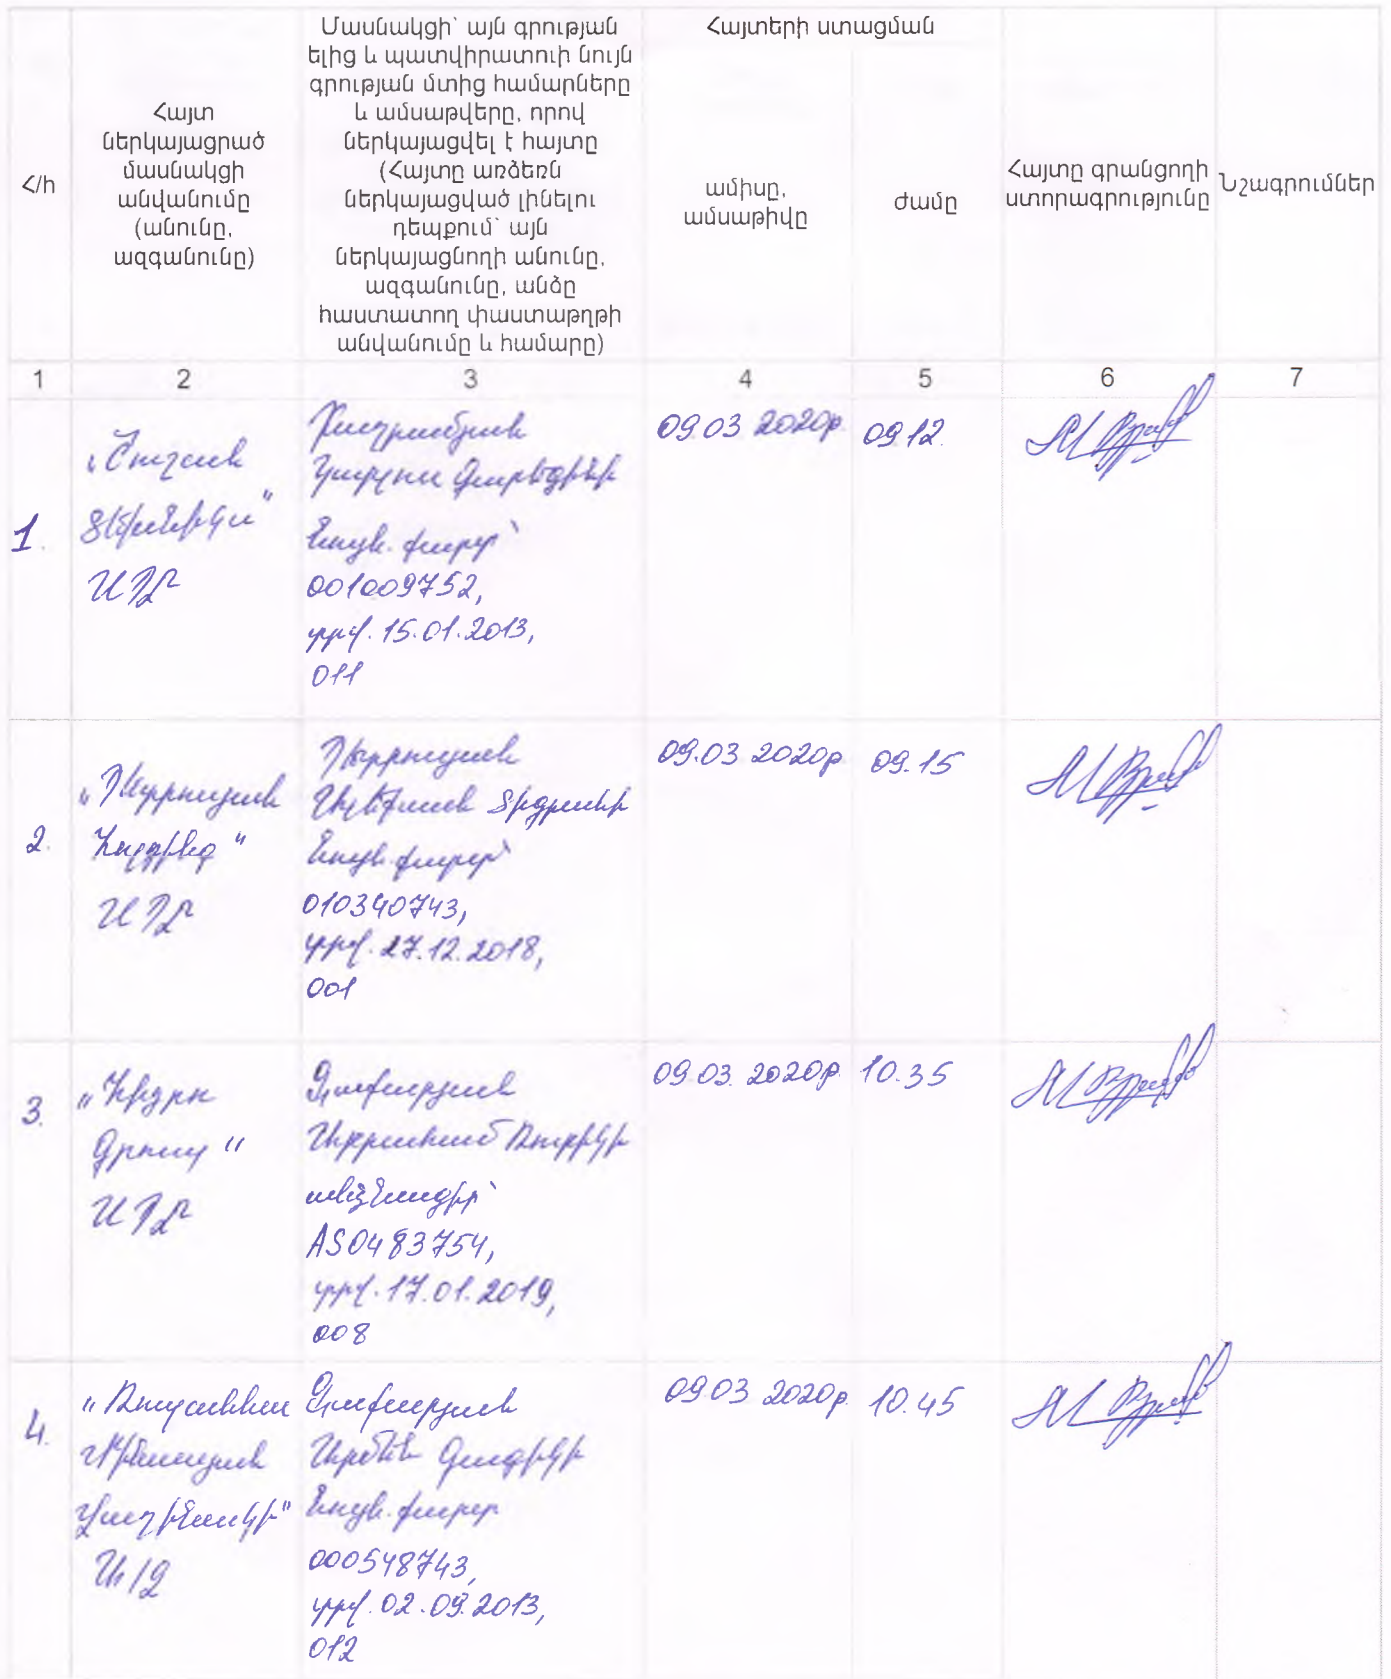 Հ/հ
Հայտ
ներկայացրած
մասնակցի
անվանումը
(անունը,
ազգանունը)
Մասնակցի՝ այն գրության
ելից և պատվիրատուի նույն
գրության մտից համարները
և ամսաթվերը, որով
ներկայացվել է հայտը
(Հայտը առձեռն
ներկայացված լինելու
դեպքում՝ այն
ներկայացնողի անունը,
ազգանունը, անձը
հաստատող փաստաթղթի
անվանումը և համարը)
Հայտերի ստացման
ամիսը,
ամսաթիվը
ժամը
Հայտը գրանցողի
ստորագրությունը
Նշագրումներ
1
2
3
4
5
6
7
1.
ՍՊԸ
Կարլոս Գարեգինի
նույն. քարտ՝
001009752,
տրվ. 15.01.2013,
011
09.03 2020թ.
09.12.
2.
ՍՊԸ
Տիգրանի
նույն. քարտ՝
010340743,
տրվ. 27.12.2018,
001
09.03 2020թ
09.15
3.
Գրուպ"
ՍՊԸ
Գասպարյան
Աբրահամ Ռուբիկի
անձնագիր՝
AS0483754,
տրվ. 17.01.2019,
008
09.03. 2020թ.
10.35
4.
"Ռուզաննա
Մինասյան
Վաղինակի"
Ա/Ձ
Գասպարյան
Արմեն Գագիկի
նույն. քարտ
000548743,
տրվ. 02.09.2013,
012
09.03 2020թ.
10.45